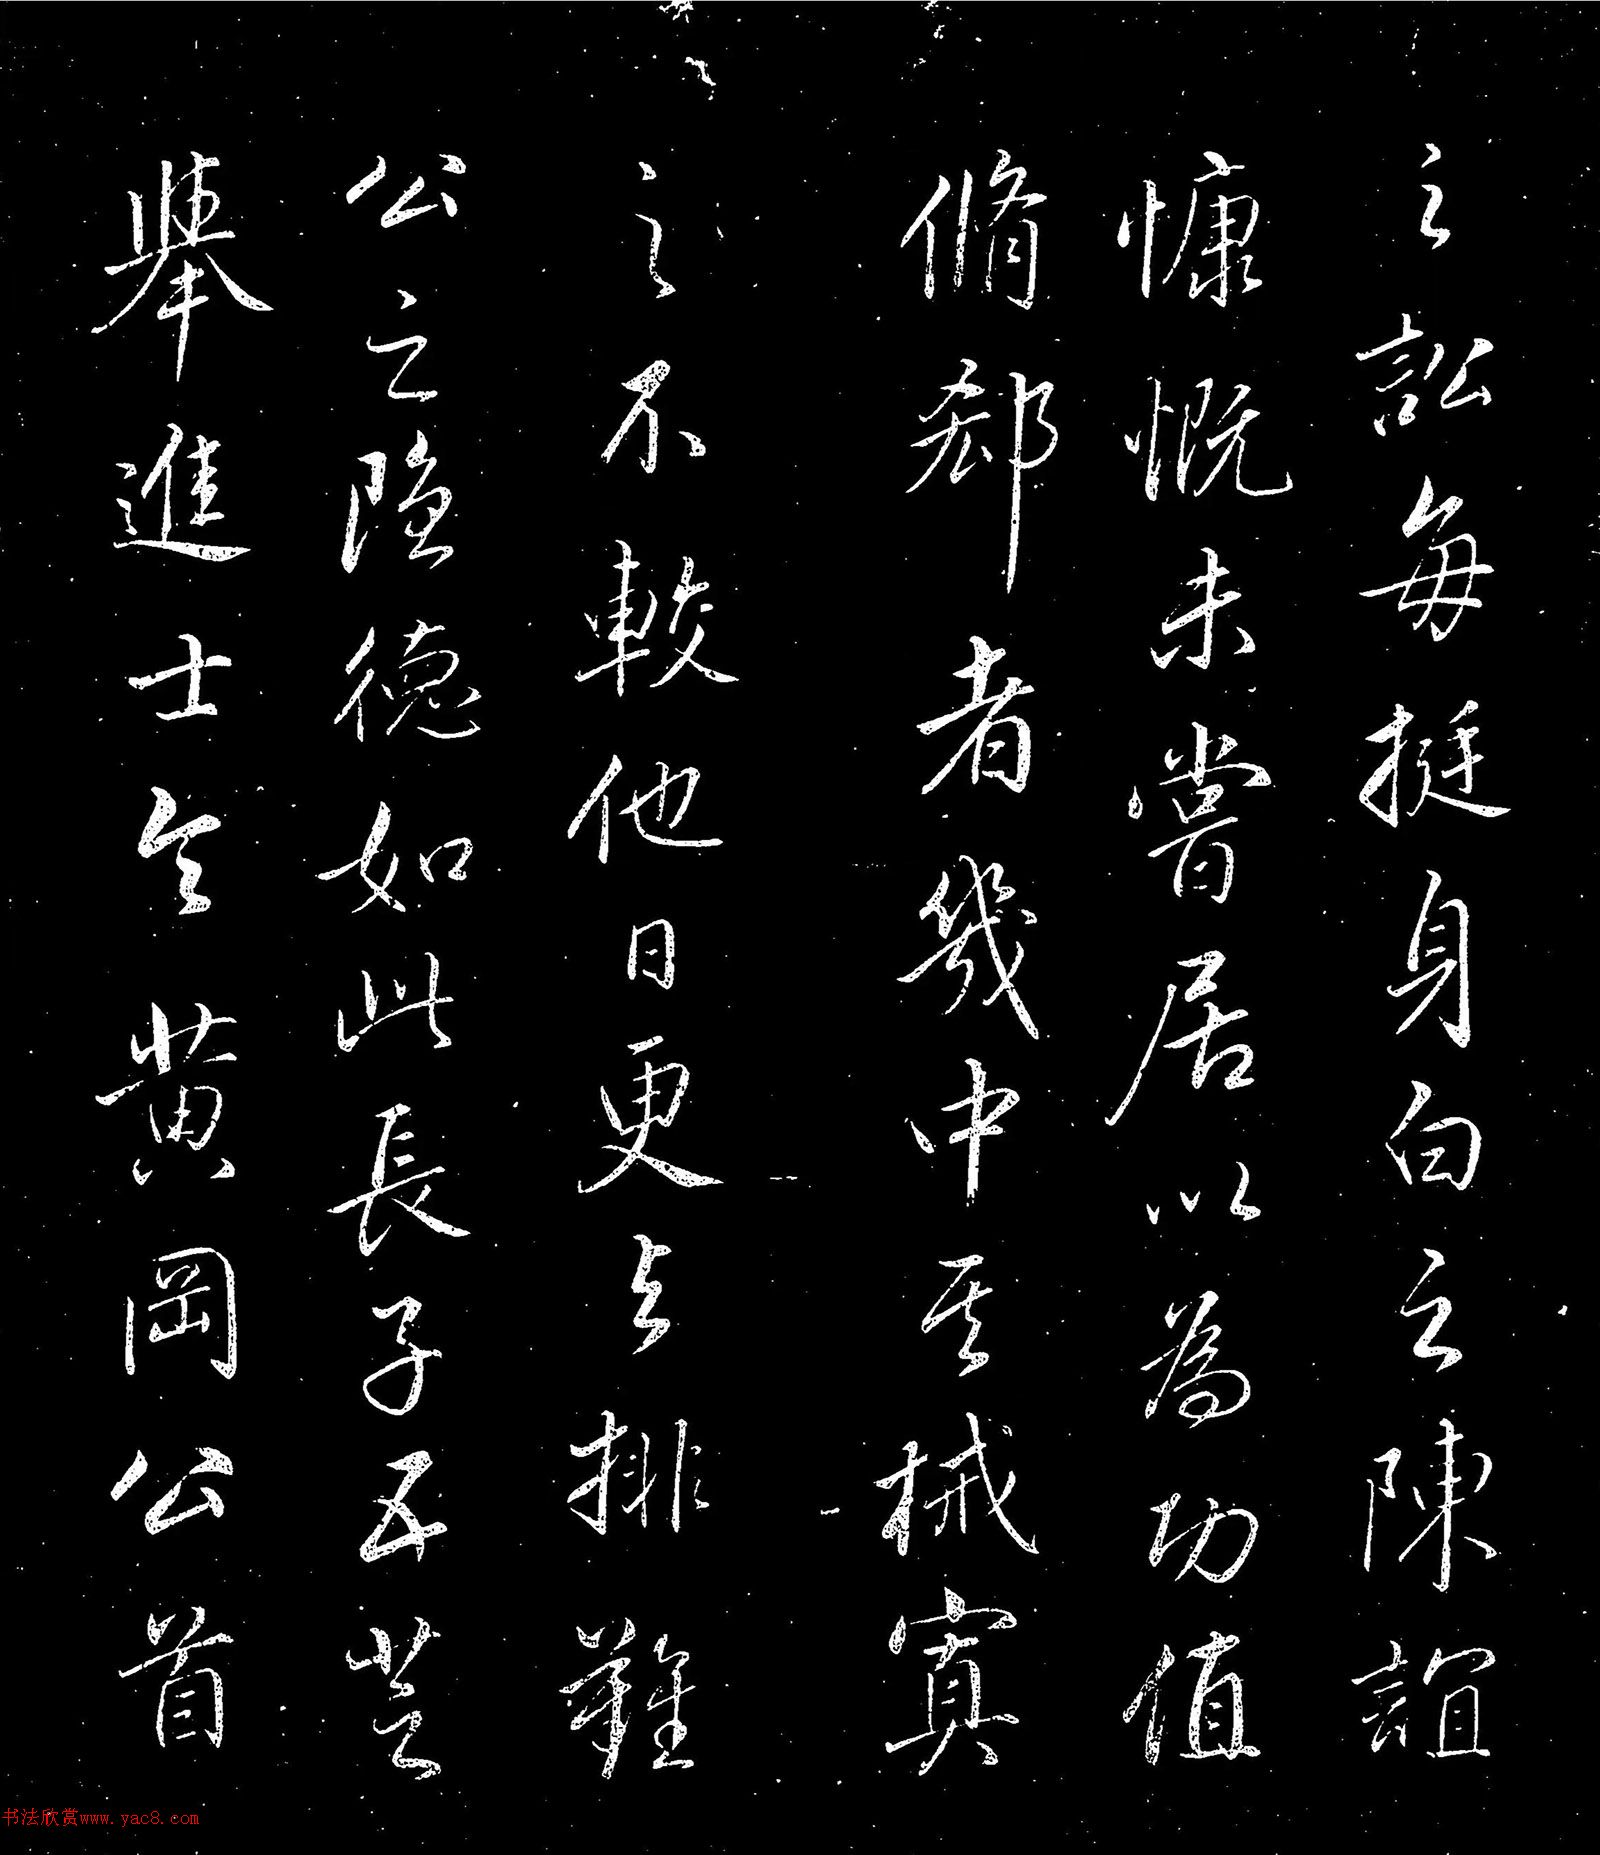 之訟每挺身白之陳誼
慷慨未嘗居以為功值
脩郄者幾中其械寘
之不較他日更与排難
公之隐德如此長子五芸
舉進士令黄岡公首
书法欣赏www.yac8.com